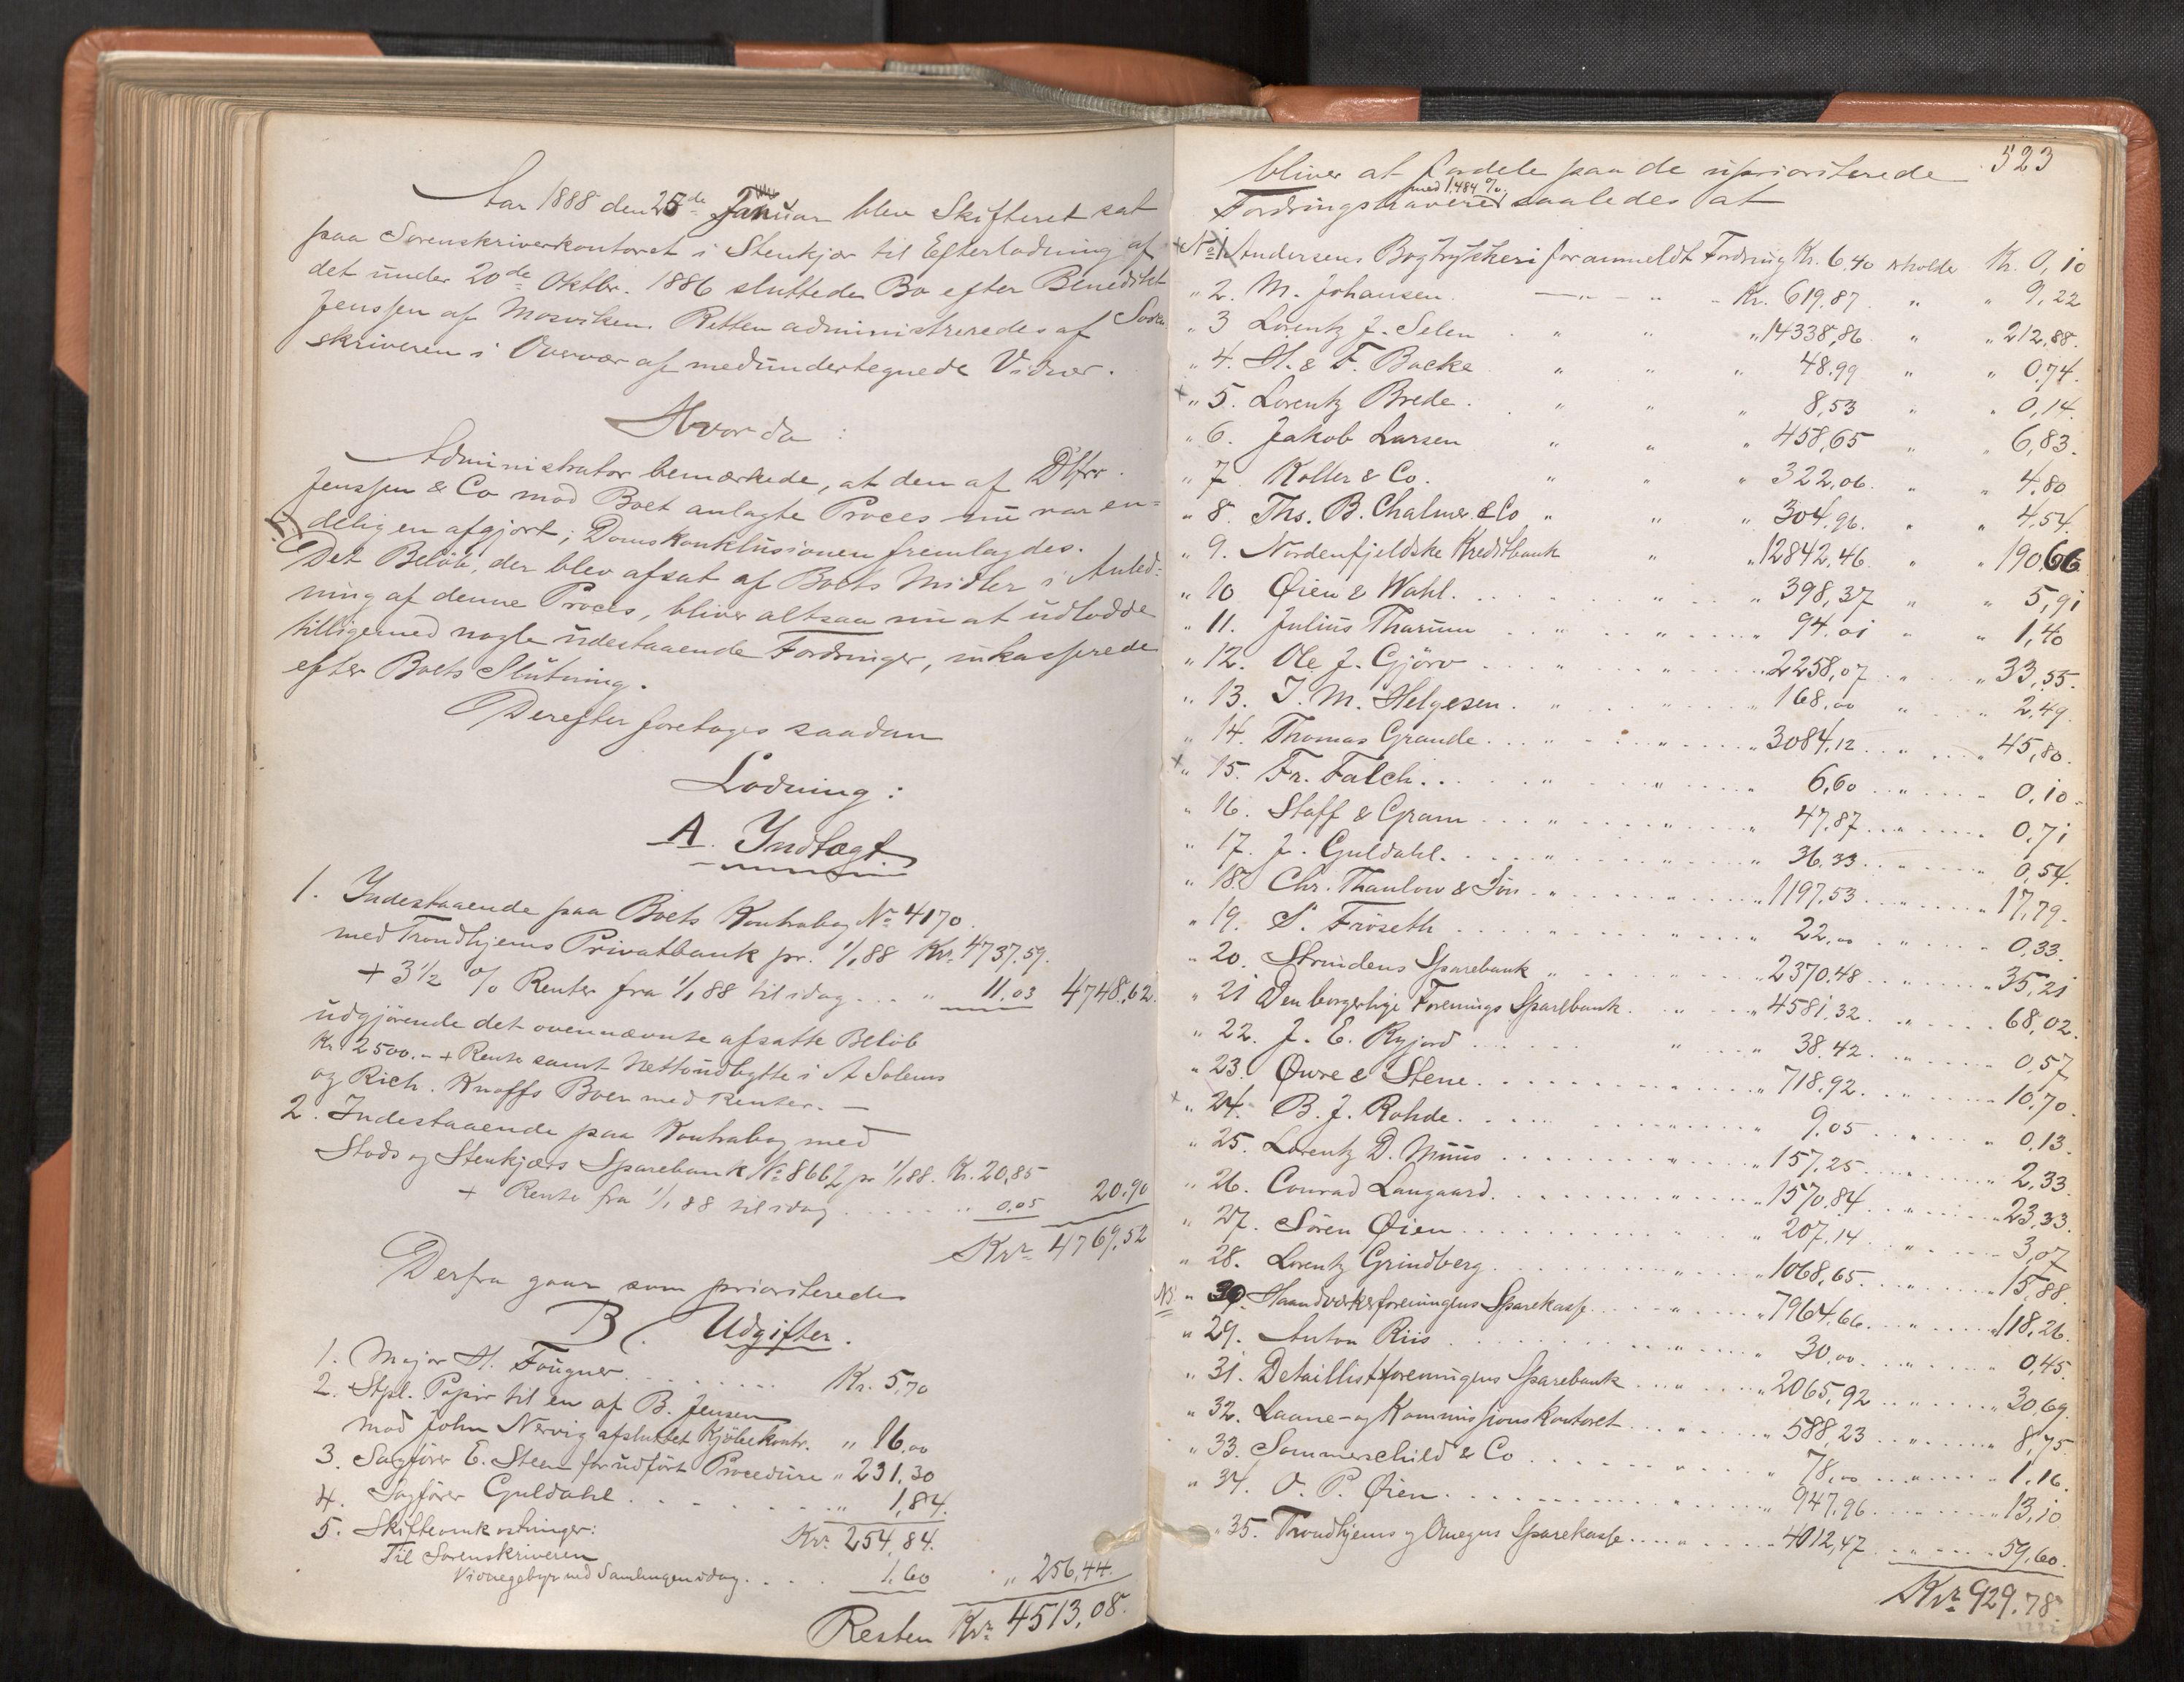 Aar 1888 den 25de Januar blev Skifteret sat
paa Sorenskriverkontoret i Stenkjær til Efterlodning af
det under 20de Oktbr. 1886 sluttede Bo efter Benedikt
Jenssen af Mosviken. Retten administreredes af Soren
skriveren i Overvær af medundertegnede Vidner.
Hvorda:
Administrator bemærkede, at den af Dhrr.
Jenssen & Co mod Boet anlagte Proces nu var en=
delig en afgjort; Domskonklusionen fremlagdes.
Det Beløb, der blev afsat af Boets Midler i Anled=
ning af denne Proces, bliver altsaa nu at udlodde
tilligemed nogle udestaaende Fordringer, inkasserede
efter Boets Slutning.
Derefter foretoges saadan
Lodning:
A. Indtægt.
1. Indestaaende paa Boets Kontrabog No 4170
med Trondhjems Privatbank pr. 1/1 88 Kr. 4737.59.
+ 3 1/2 % Renter fra 1/1 88 til idag . . . " 11.03 4748,62.
udgjørende det ovennævnte afsatte Beløb
Kr. 2500.- + Rente samt Nettoudbytte i A Solems
og Rich. Knoffs Boer med Renter. —
2. Indestaaende paa Kontrabog med
Stods og Stenkjærs Sparebank No 8662 pr 1/1 88. Kr. 20,85
+ Rente fra 1/1 88 til idag . . . . . " 0,05 20.90
Kr. 4769,52
Derfra gaar som prioriterede
B. Udgifter.
1. Major H. Fougner . . . . . . . Kr. 5,70
2. Stpl. Papir til en af B. Jensen
mod John Nervig afsluttet Kjøbekontr. " 16.00
3. Sagfører E. Steen for udført Procedure " 231,30
4. Sagfører Guldahl . . . . . . . " 1,84.
5. Skifteomkostninger: Kr. 254,84.
Til Sorenskriveren
Vidnegebyr ved Samlingen idag . . . . 1,60 " 256,44.
Resten Kr. 4513,08.
523
bliver at fordele paa de uprioriterede
med 1,484 %
Fordringshavere saaledes at
+ No 1 Andersens Bogtrykkeri for anmeldt Fordring Kr. 6.40 erholde Kr. 0,10
" 2. M. Johansen. —"— " Kr. 619,87. " " 9,22
" 3 Lorentz J. Selen . " " " 14338,86 " " 212,88.
" 4. H. & F. Backe " " " 48.99 " " 0,74.
+ " 5. Lorentz Brede . " " " 8,53 " " 0,14.
" 6. Jakob Larsen " " " 458,65 " " 6,83.
" 7. Koller & Co. " " " 322,06. " " 4,80
" 8. Ths. B. Chalmer & Co " " " 304.96. " " 4,54.
" 9. Nordenfjeldske Kreditbank " " 12842,46. " " 190,66
" 10 Øien & Wahl. . . . " " 398,37 " " 5,91
" 11. Julius Tharum . . " " " 94.01 " " 1,40
" 12. Ole J. Gjörv . . . " " " 2258,07 " " 33,55.
" 13. J. M. Helgesen . " " " 168,00 " " 2,49.
" 14. Thomas Grande . . . " " " 3084,12 . . " " 45,80.
+ " 15. Fr. Falch . . . " " " 6,60 . . . " 0,10.
" 16. Staff & Gram . . . " " " 47,87 . . " 0,71
" 17. J. Guldahl. . . . " " " 36.33 . . " 0,54.
" 18. Chr. Thaulow & Sön . " " " 1197,53 . . " 17,79.
" 19. S. Fröseth . . . . . " 22,00 . . " 0,33.
" 20. Strindens Sparebank " " " 2370.48 . . " 35,21
" 21 Den borgerlige Forenings Sparebank. . " " 4581,32. . " 68,02.
" 22. J. E. Ryjord . . . " " 38.42 . . " 0,57
" 23. Öwre & Stene . . . . " 718.92. . " 10,70.
+ " 24. B. J. Rohde. . . . . " 9.05 . . " 0,13.
" 25. Lorentz D. Müüs . . . . " 157,25. . " 2,33.
" 26. Conrad Langaard. . . . " 1570,84 . . " 23,33.
" 27. Sören Øien . . . . . " 207.14 . . " 3,07
" 28. Lorentz Grindberg . . . . " 1068,65 . . " 15,88
NB. " 30. Haandværkerforeningens Sparekasse . . " 7964,66 . . " 118,26.
" 29. Anton Riis . . . . . " 30,00. . " 0,45.
" 31. Detaillistforeningens Sparebank . . " 2065,92 . . " 30,69.
" 32. Laane- og Kommissionskontoret . . " 588,23 . . " 8,75
" 33. Sommerschild & Co . . . . " 78,00 . . " 1.16.
" 34. O. P. Øien . . . . . " 947,96 . . " 13,10
" 35. Trondhjems og Omegns Sparekasse . . . " 4012,47 . . " 59,60.
Kr. 929.78.